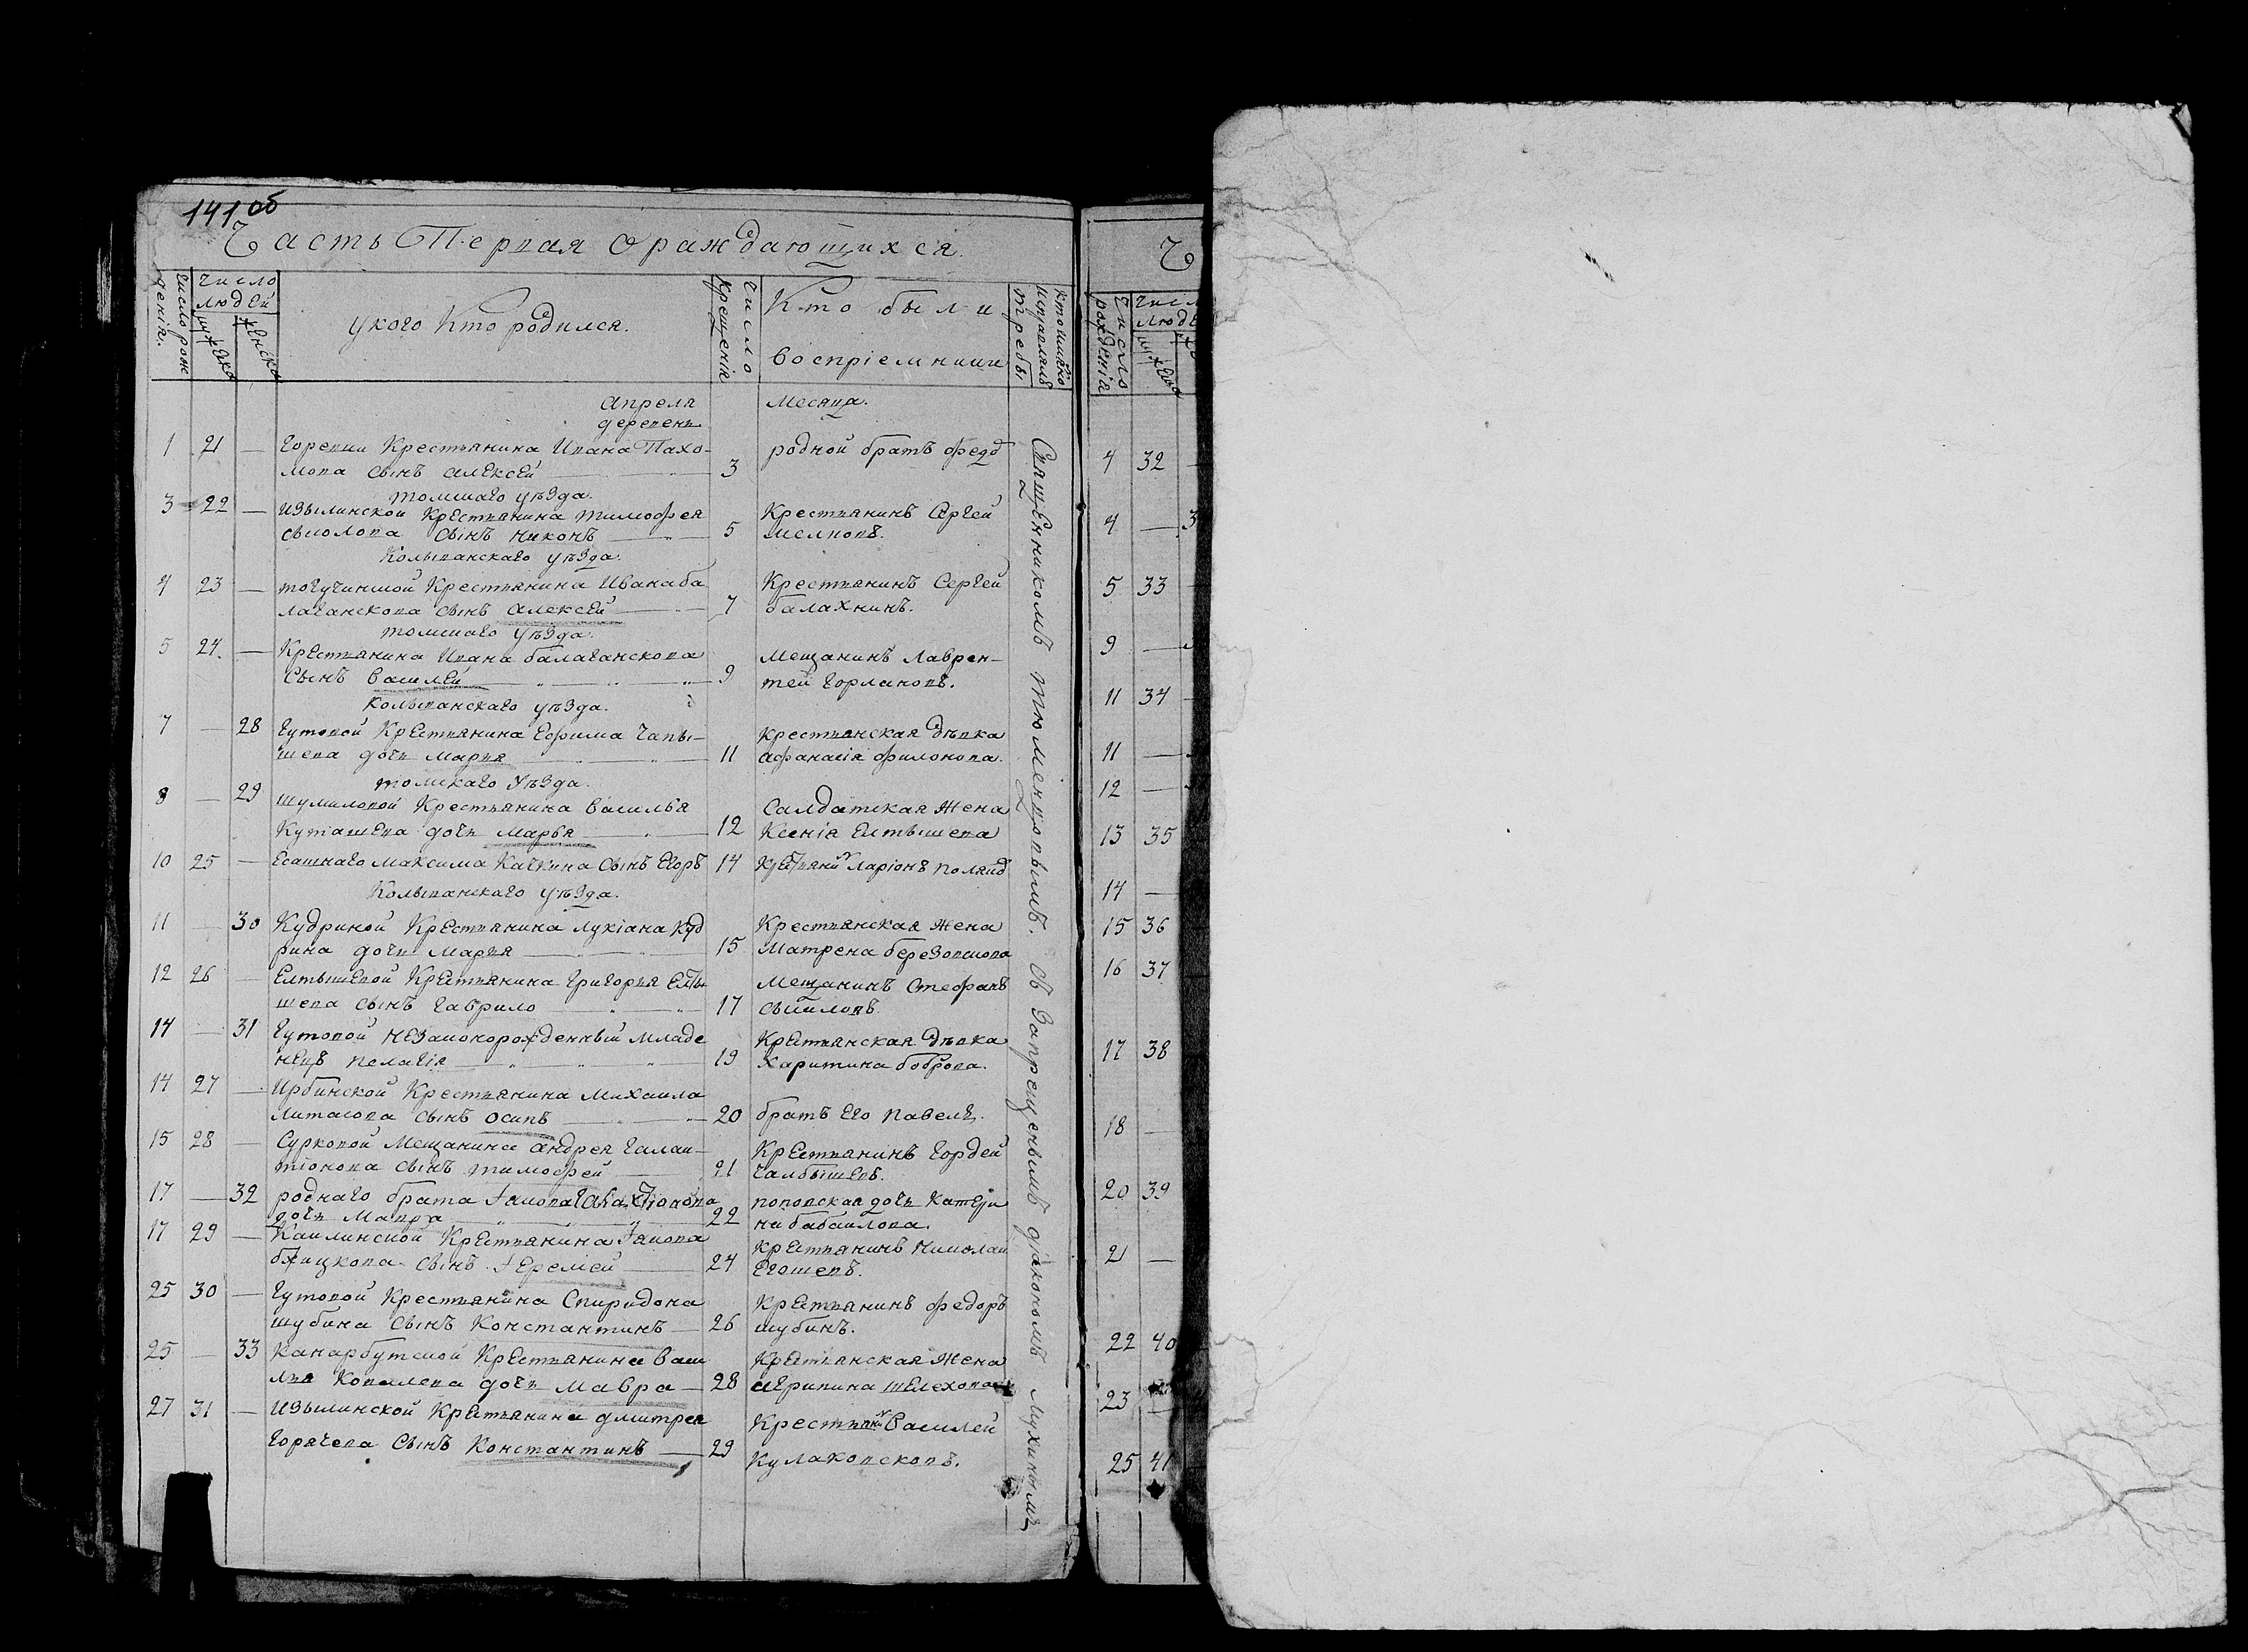 141 об
Часть Первая ораждающихся.
Число рождения.
Число людей
мужеска
женска
укого Кто родился.
Число Крещения
Кто были
воспріемники
Кто исправлялъ требы
апрель Месяца.
деревень
1 21 — Горевки Крестьянина Ивана Пахо-
мова сынъ алексей 3 родной братъ федо
томскаго уѣзда.
3 22 — изылинской Крестьянина тимофея
смолова сынъ никонъ 5 Крестьянинъ Сергей
Колыванскаго уѣзда.
4 23 — тогучинской Крестьянина Ивана ба
лаганскова сынъ алексей 7 Крестьянинъ Сергей
балахнинъ.
томскаго уѣзда.
5 24. — Крестьянина Ивана балаганскова
Сынъ василей 9 Мещанинъ Лаврен-
тей горлановъ.
Колыванскаго уѣзда.
7 — 28 гутовой Крестьянина Ефима Чапы-
шева дочь Марья 11 Крестьянская дѣвка
афанасія филонова.
томскаго уѣзда.
8 — 29 шумиловой Крестьянина василья
Куташева дочь Марья 12 Салдатская Жена
Ксенія Елтышева
10 25 — Есашнаго Максима Качкина сынъ Егоръ 14 Ларіонъ
Колыванскаго уѣзда.
11 — 30 Кудриной Крестьянина лукіана Куд
рина дочь Марья 15 Крестьянская Жена
Матрена березовскова
12 26 — Елтышевой Крестьянина григорья Елты
шева сынъ гаврило 17 Мещанинъ Стефанъ
14 — 31 гутовой незаконорожденный младе
нецъ пелагія 19 Крестьянская дѣвка
Харитина боброва.
14 27 — Ирбинской Крестьянина Михаила
литасова сынъ осипъ 20 братъ Его павелъ.
15 28 — Сурковой Мещанина андрея галак-
тіонова сынъ тимофей 21 Крестьянинъ гордей
Чалбышевъ.
17 — 32 роднаго брата
дочь Мавра 22 поповская дочь Катери
на бабаилова.
17 29 — Каилинской Крестьянина
сынъ Іеремей 24 Крестьянинъ николай
Егошевъ.
25 30 — гутовой Крестьянина Спиридона
шубина сынъ Константинъ 26 Крестьянинъ федоръ
шубинъ.
25 — 33 Канарбутской Крестьянина васи
лья Ковалева дочь Мавра 28 Крестьянская Жена
агрипина шелехова
27 31 — изылинской Крестьянина дмитрея
горячева Сынъ Константинъ 29 Крестьянинъ Василей
Кулаковсковъ.
Священникомъ тюменцовымъ. Съ Запрещеннымъ діакономъ Мухинымъ
Ч
Число рождения
Числ
люде
муж
4 32
4 — 3
5 33
9 —
11 34
11 —
12 —
13 35
14 —
15 36
16 37
17 38
18 —
20 39
21 —
22 40
23 —
25 41